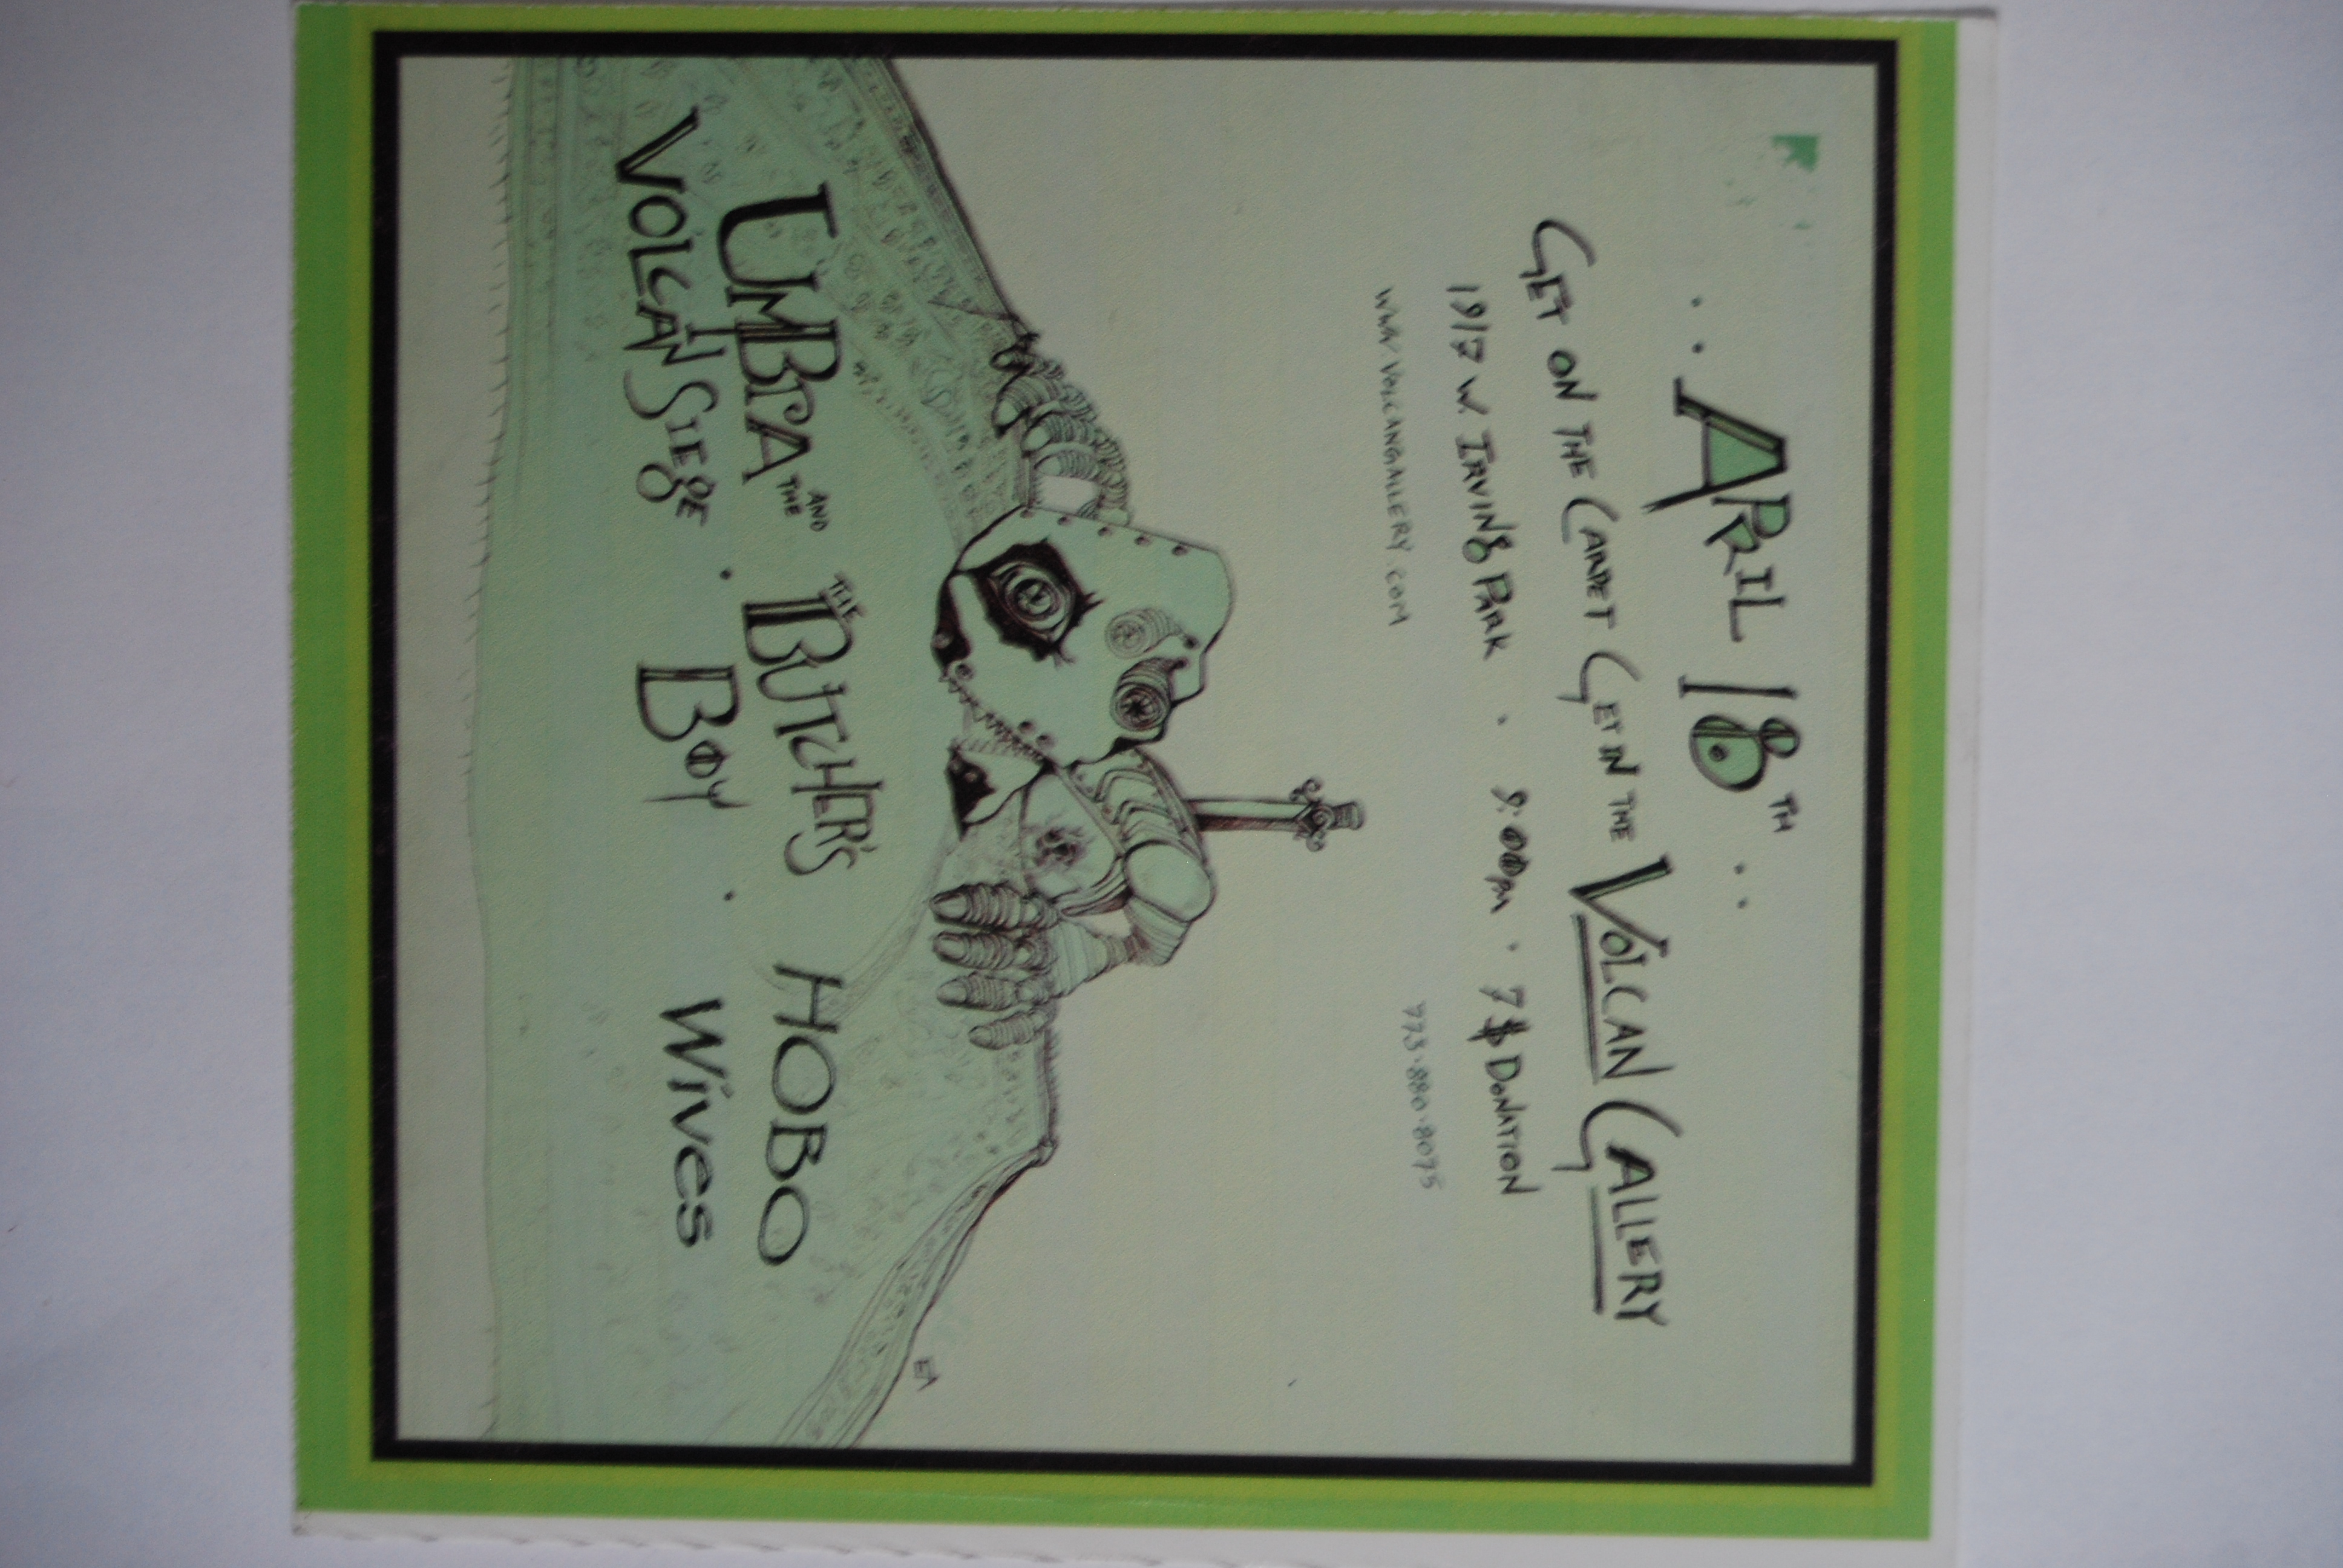 .. APRIL 18TH ..
GET ON THE CARPET GET IN THE VOLCAN GALLERY
1917 W. IRVING PARK . 9:00PM . 7$ DONATION
WWW.VOLCANGALLERY.COM 773.880.8075
UMBRA AND THE VOLCAN SIEGE . THE BUTCHER'S BOY . HOBO Wives